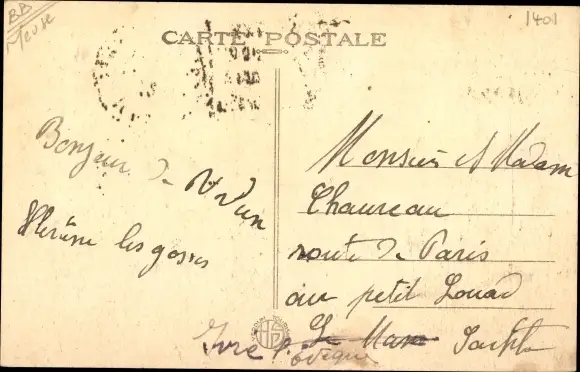 BB
Meuse
1401
CARTE POSTALE
Bonjour de Verdun
les gosses
Monsieur et Madam
Chauveau
route de Paris
au petit Louad
Yvré l'Evêque Le Mans Sarthe